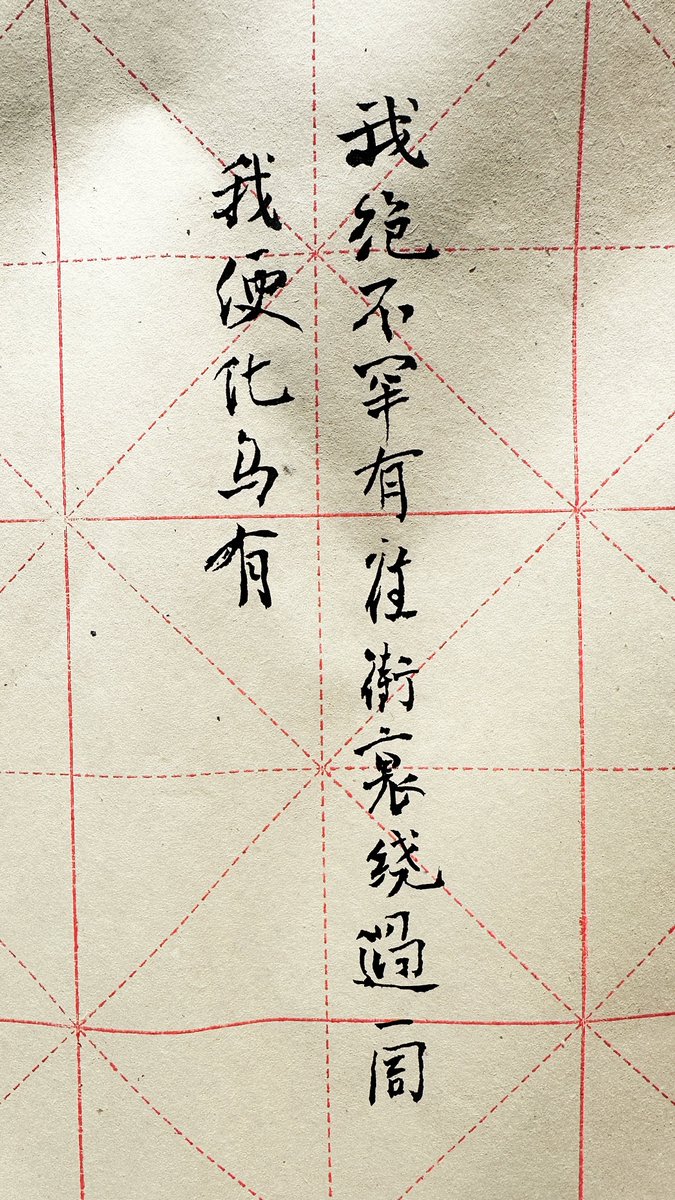 我绝不罕有往街裏绕過一周
我便化乌有